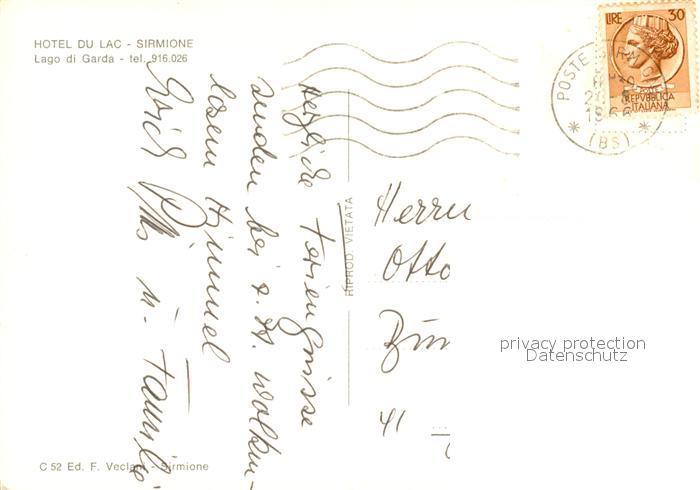 HOTEL DU LAC - SIRMIONE
Lago di Garda - tel. 916.026
Herzliche Feriengrüsse
senden bei z. Zt. wolken-
losem Himmel
u. Familie
RIPROD. VIETATA
LIRE 30
REPVBBLICA
ITALIANA
POSTE
(BS)
Herrn
Otto
41
privacy protection
Datenschutz
C 52 Ed. F. Veclani - Sirmione